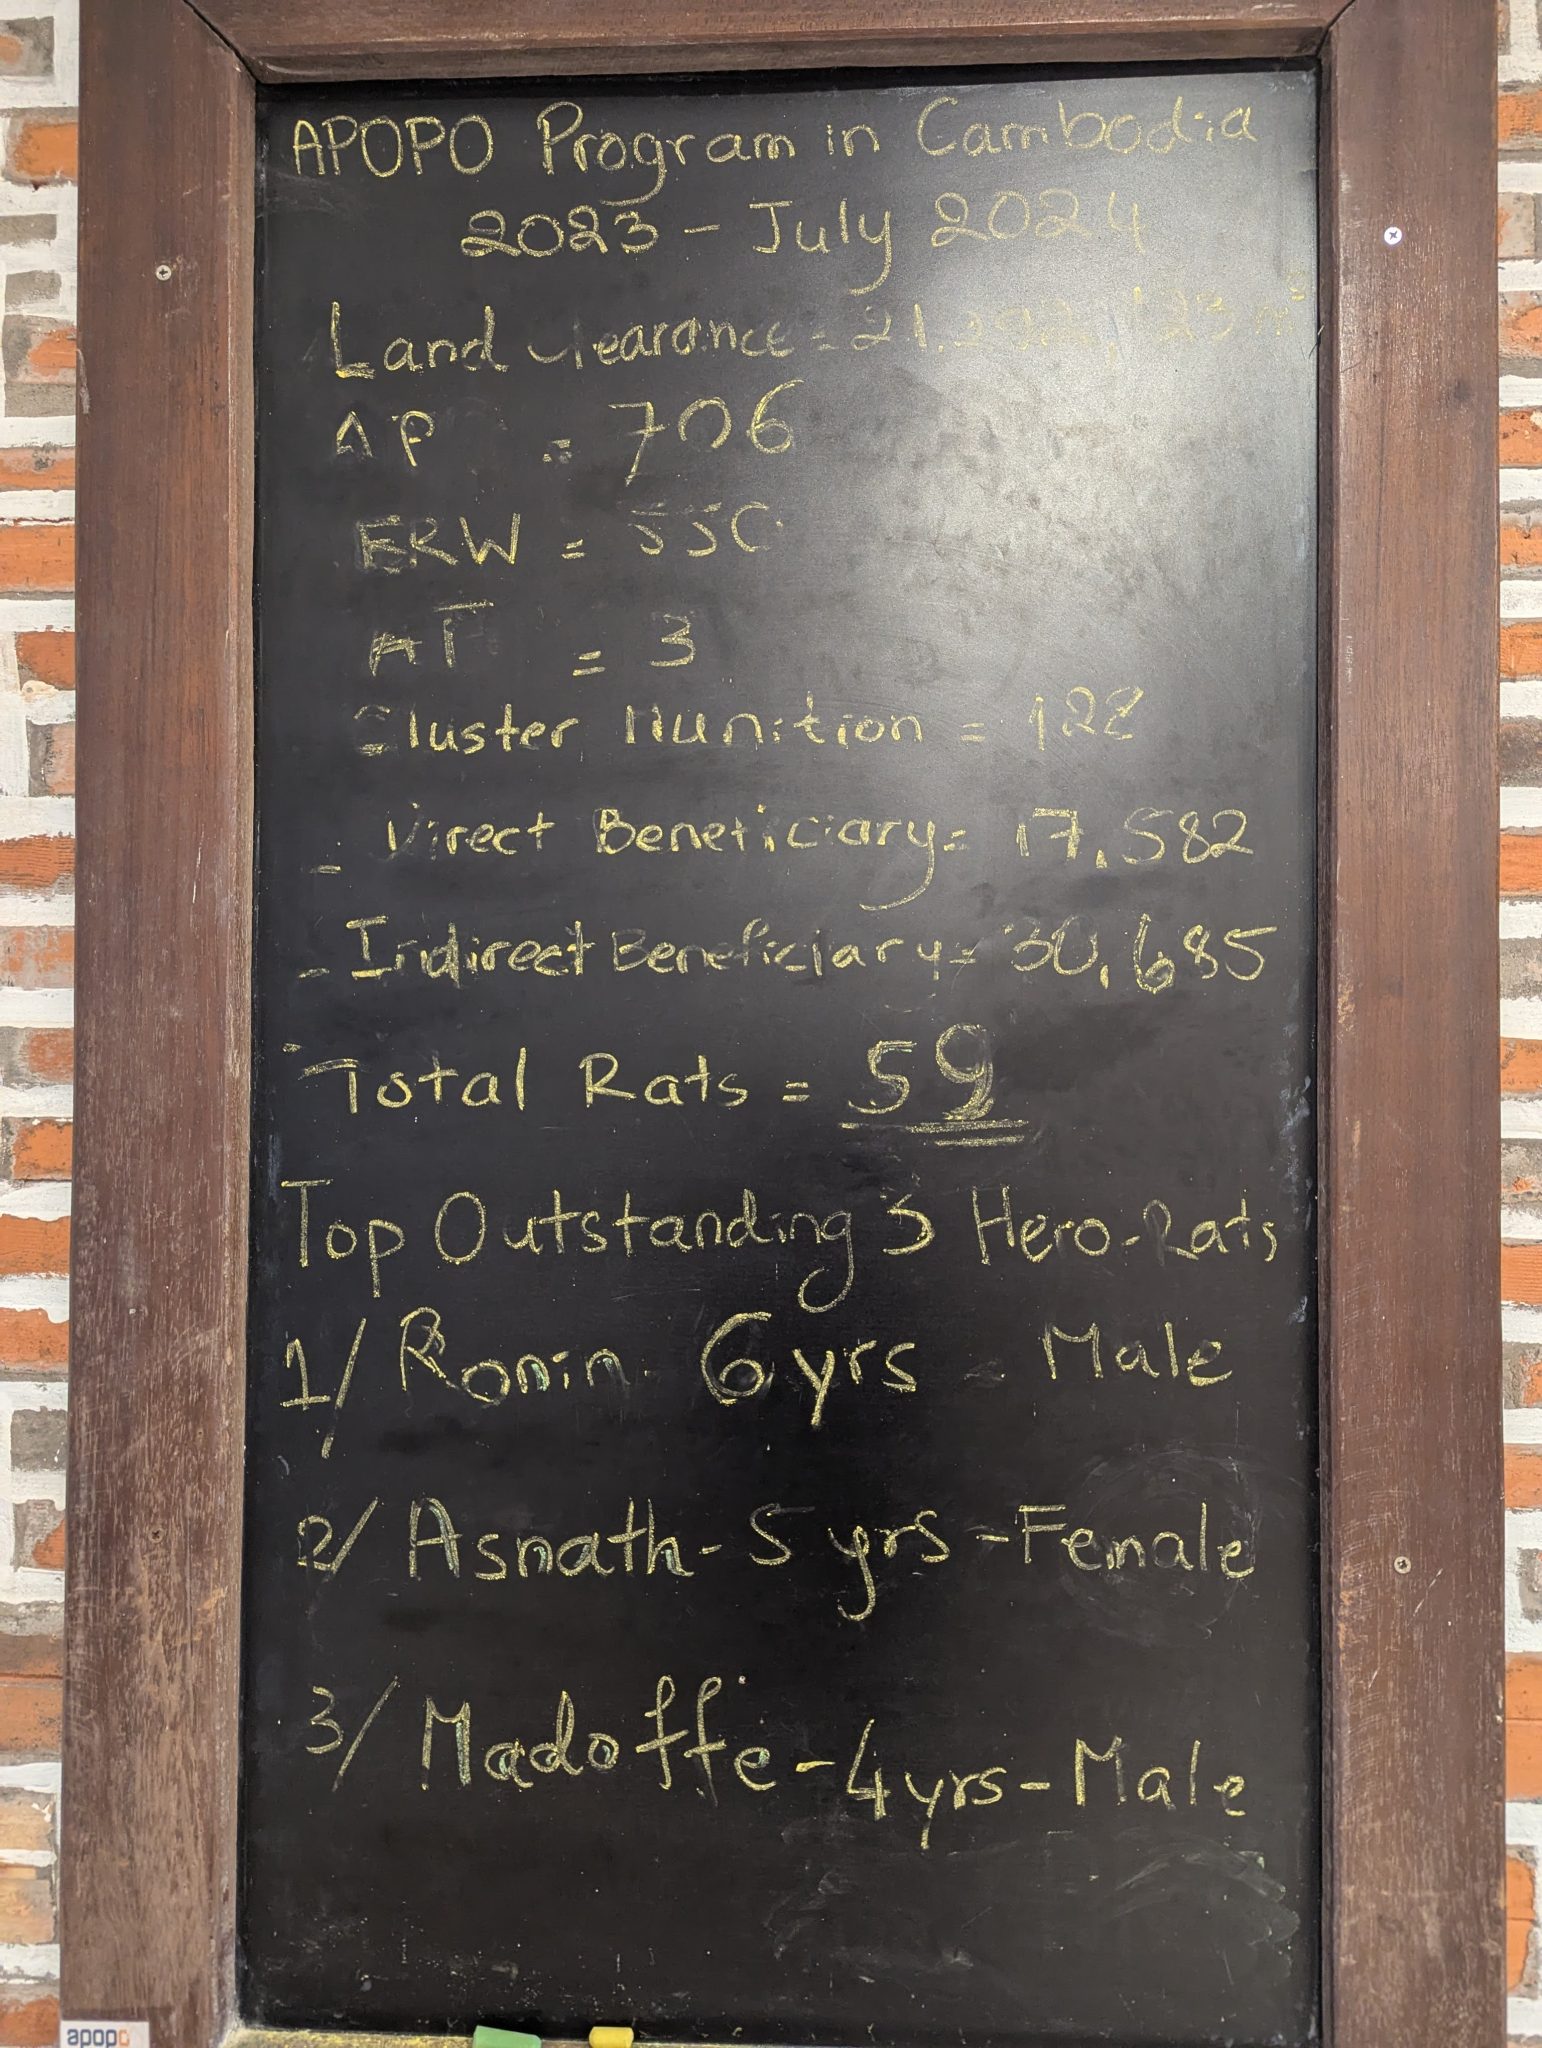 APOPO Program in Cambodia
2023 - July 2024
Land clearance =
AP = 706
ERW =
AT = 3
Cluster Munition =
- Direct Beneficiary = 17,582
- Indirect Beneficiary = 30,685
Total Rats = 59
Top Outstanding 3 Hero-Rats
1/ Ronin - 6 yrs - Male
2/ Asnath - 5 yrs - Female
3/ Madoffe - 4 yrs - Male
apopo